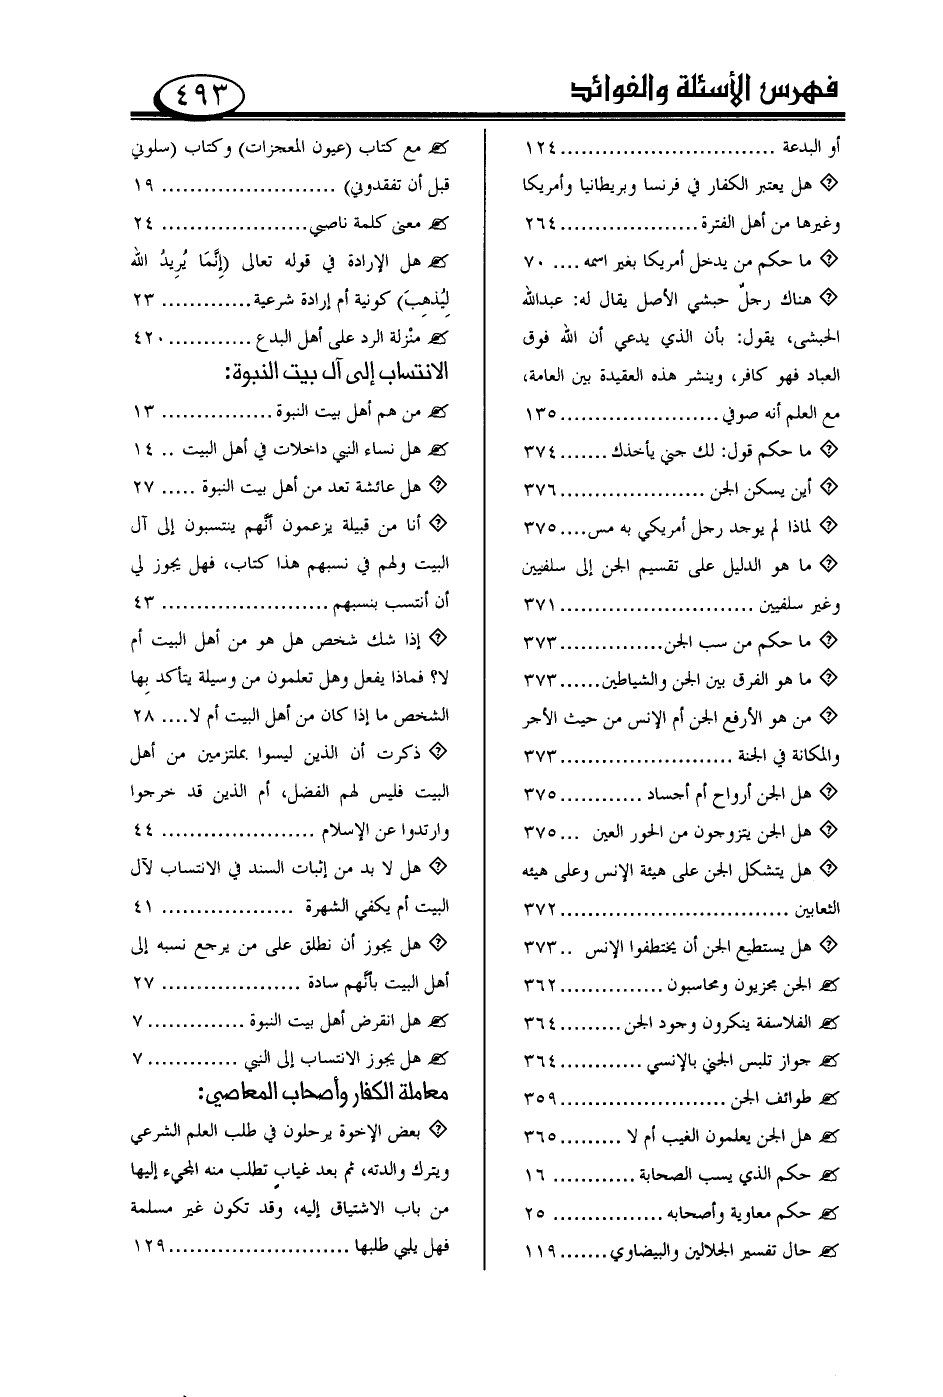 فهرس الأسئلة والفوائد
٤٩٣
أو البدعة .............................. ١٢٤
هل يعتبر الكفار في فرنسا وبريطانيا وأمريكا
وغيرها من أهل الفترة ................... ٢٦٤
ما حكم من يدخل أمريكا بغير اسمه .... ٧٠
هناك رجلٌ حبشي الأصل يقال له: عبدالله
الحبشى، يقول: بأن الذي يدعي أن الله فوق
العباد فهو كافر، وينشر هذه العقيدة بين العامة،
مع العلم أنه صوفي ...................... ١٣٥
ما حكم قول: لك جني يأخذك ....... ٣٧٤
أين يسكن الجن ..................... ٣٧٦
لماذا لم يوجد رجل أمريكي به مس.... ٣٧٥
ما هو الدليل على تقسيم الجن إلى سلفيين
وغير سلفيين ........................... ٣٧١
ما حكم من سب الجن............... ٣٧٣
ما هو الفرق بين الجن والشياطين...... ٣٧٣
من هو الأرفع الجن أم الإنس من حيث الأجر
والمكانة في الجنة ........................ ٣٧٣
هل الجن أرواح أم أجساد ............ ٣٧٥
هل الجن يتزوجون من الحور العين ... ٣٧٥
هل يتشكل الجن على هيئة الإنس وعلى هيئه
الثعابين ................................ ٣٧٢
هل يستطيع الجن أن يختطفوا الإنس .. ٣٧٣
الجن مجزيون ومحاسبون ............... ٣٦٢
الفلاسفة ينكرون وجود الجن ......... ٣٦٤
جواز تلبس الجني بالإنسي ............ ٣٦٤
طوائف الجن ........................ ٣٥٩
هل الجن يعلمون الغيب أم لا ......... ٣٦٥
حكم الذي يسب الصحابة ............ ١٦
حكم معاوية وأصحابه ................ ٢٥
حال تفسير الجلالين والبيضاوي ....... ١١٩
مع كتاب (عيون المعجزات) وكتاب (سلوني
قبل أن تفقدوني) ........................ ١٩
معنى كلمة ناصبي..................... ٢٤
هل الإرادة في قوله تعالى (إِنَّمَا يُرِيدُ الله
لِيُذهِبَ) كونية أم إرادة شرعية ............. ٢٣
منْزلة الرد على أهل البدع ............ ٤٢٠
الانتساب إلى آل بيت النبوة:
من هم أهل بيت النبوة ................ ١٣
هل نساء النبي داخلات في أهل البيت .. ١٤
هل عائشة تعد من أهل بيت النبوة ..... ٢٧
أنا من قبيلة يزعمون أنَّهم ينتسبون إلى آل
البيت ولهم في نسبهم هذا كتاب، فهل يجوز لي
أن أنتسب بنسبهم ....................... ٤٣
إذا شك شخص هل هو من أهل البيت أم
لا؟ فماذا يفعل وهل تعلمون من وسيلة يتأكد بِها
الشخص ما إذا كان من أهل البيت أم لا.... ٢٨
ذكرت أن الذين ليسوا بملتزمين من أهل
البيت فليس لهم الفضل، أم الذين قد خرجوا
وارتدوا عن الإسلام ...................... ٤٤
هل لا بد من إثبات السند في الانتساب لآل
البيت أم يكفي الشهرة ................... ٤١
هل يجوز أن نطلق على من يرجع نسبه إلى
أهل البيت بأنَّهم سادة .................... ٢٧
هل انقرض أهل بيت النبوة .............. ٧
هل يجوز الانتساب إلى النبي ............. ٧
معاملة الكفار وأصحاب المعاصي:
بعض الإخوة يرحلون في طلب العلم الشرعي
ويترك والدته، ثم بعد غيابٍ تطلب منه المجيء إليها
من باب الاشتياق إليه، وقد تكون غير مسلمة
فهل يلبي طلبها .......................... ١٢٩